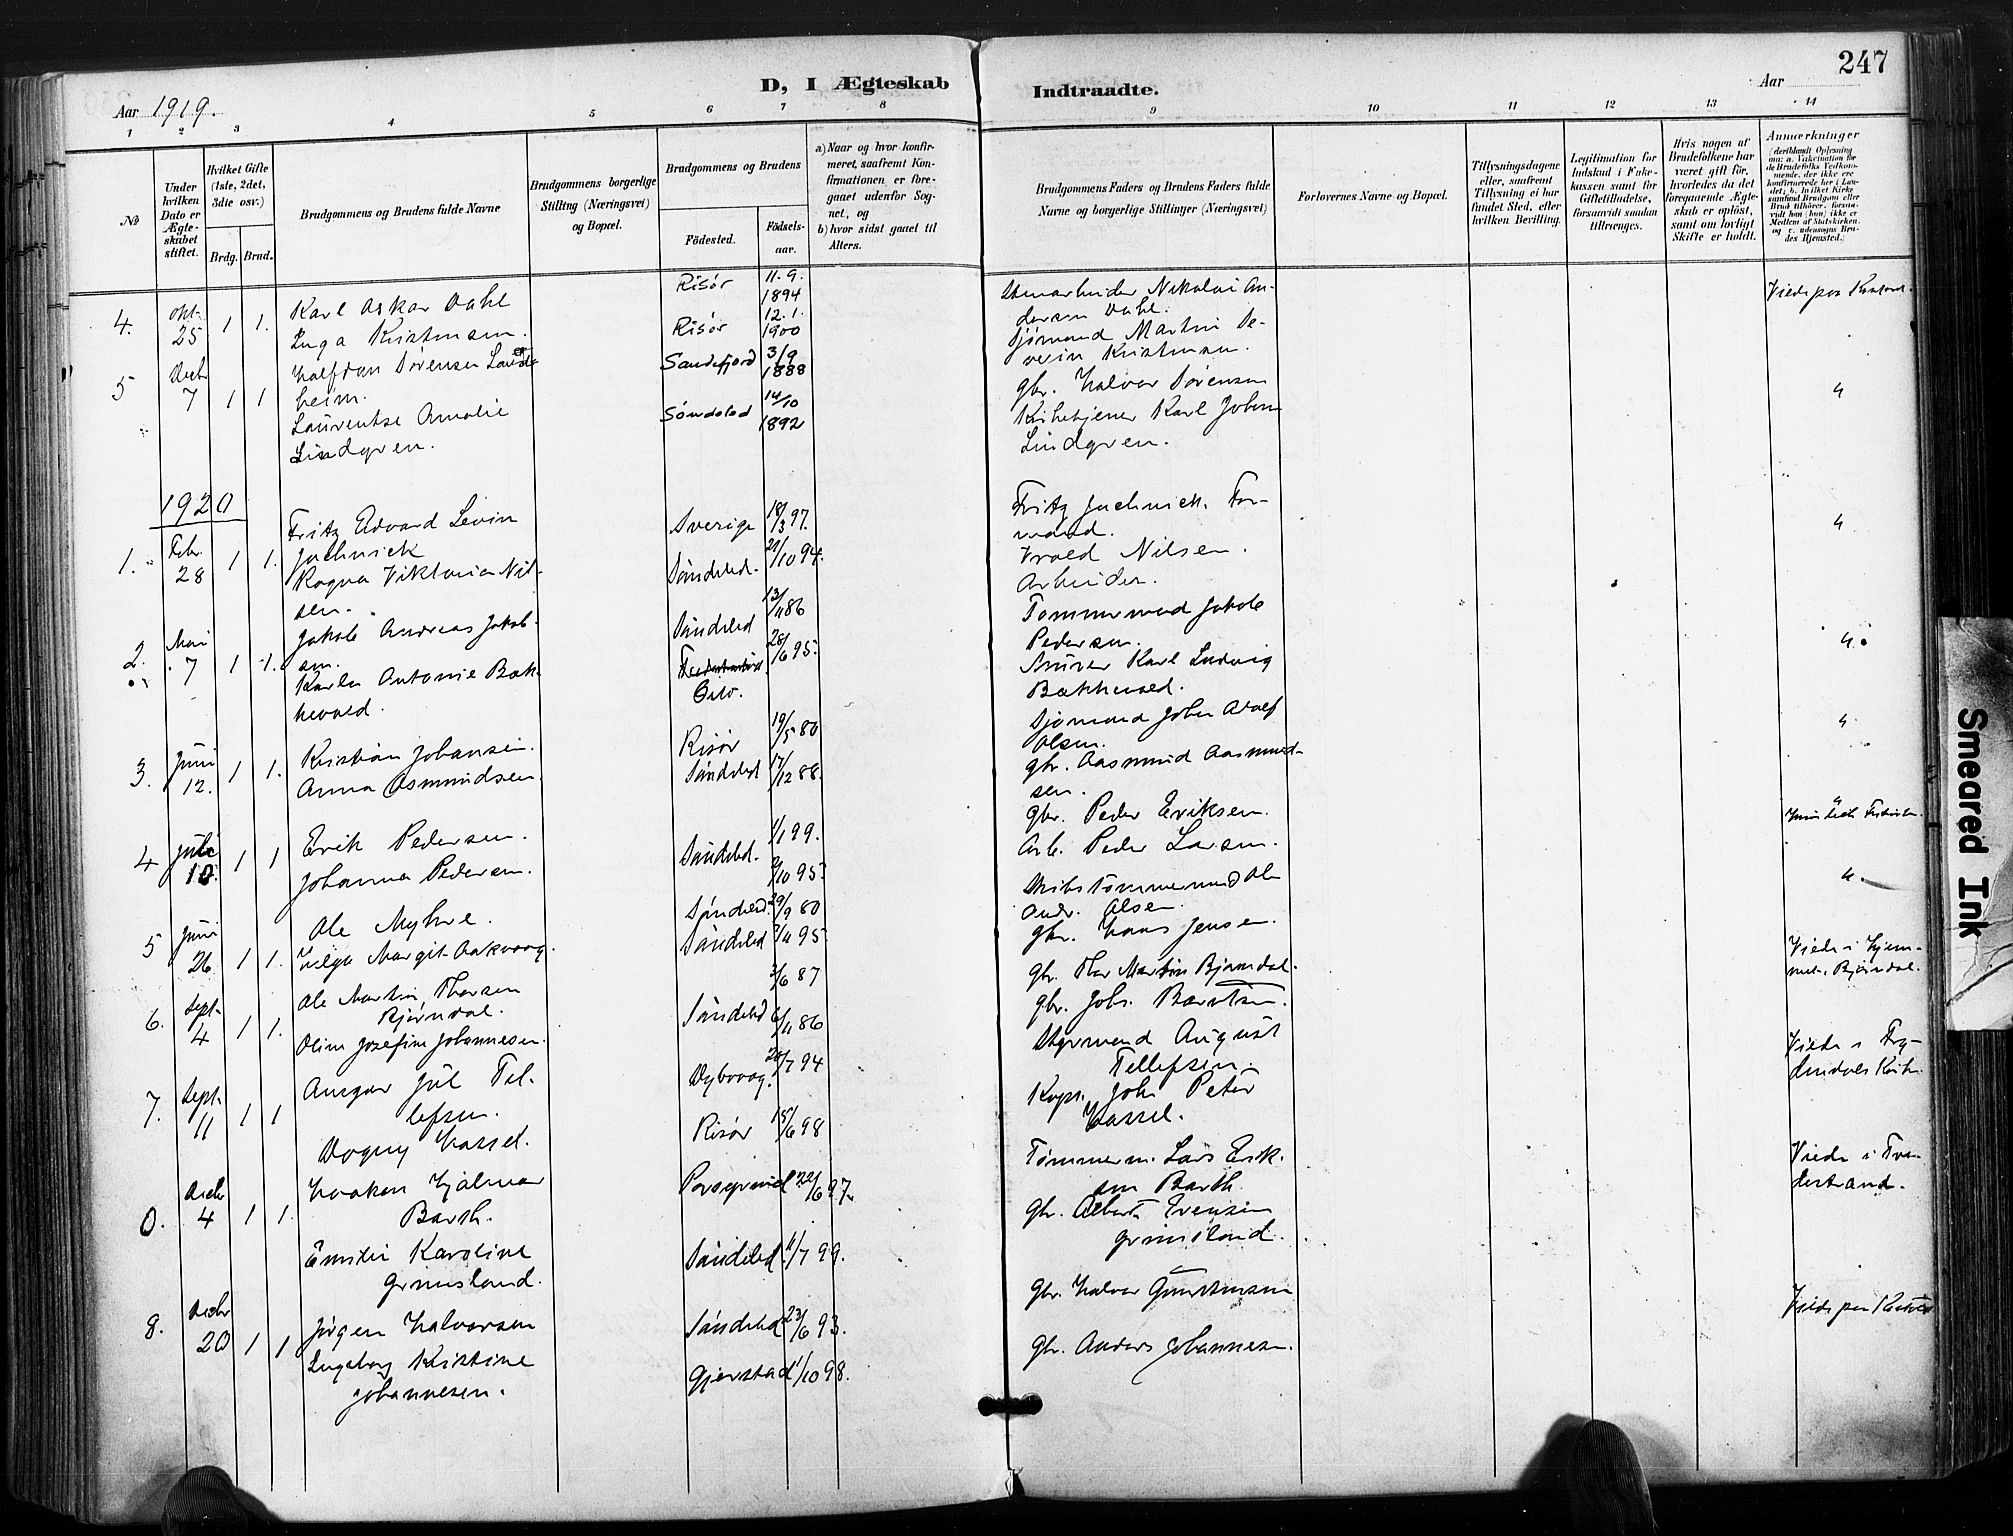 247
D, I Ægteskab Indtraadte.
Aar 1919.
Aar
1 2 3 4 5 6 7 8 9 10 11 12 13 14
No
Under hvilken Dato er Ægteskabet stiftet.
Hvilket Gifte (1ste, 2det, 3die osv.)
Brdg. Brud.
Brudgommens og Brudens fulde Navne
Brudgommens borgerlige Stilling (Næringsvei) og Bopæl.
Brudgommens og Brudens
Fødested. Fødselsaar.
a) Naar og hvor konfirmeret, saafremt Konfirmationen er foregaaet udenfor Sognet, og
b) hvor sidst gaaet til Alters.
Brudgommens Faders og Brudens Faders fulde Navne og borgerlige Stillinger (Næringsvei)
Forlovernes Navne og Bopæl.
Tillysningsdagene eller, saafremt Tillysning ei har fundet Sted, efter hvilken Bevilling.
Legitimation for Indskud i Enkekassen samt for Giftetilladelse, forsaavidt saadan tiltrænges.
Hvis nogen af Brudefolkene har været gift før, hvorledes da det foregaaende Ægteskab er opløst, samt om lovligt Skifte er holdt.
Anmærkninger
4. Okt. 25 1 1.
Karl Oskar Dahl
Risør 11.9. 1894
Stenarbeider Nikolai Andersen Dahl.
Inga Kristensen.
Risør 12.1. 1900
Sjømand Martin Severin Kristensen.
5 Decbr 7 1 1
Halfdan Sørensen
heim.
Sandefjord 3/9 1888
gbr. Halvor Sørensen
"
Laurentse Amalie
Lindgren.
Søndeled 14/10 1892
Kirketjener Karl Johan
Lindgren.
1920
1. Febr. 28 1 1.
Fritz Edvard Levin
Jachnick
Sverige 18/3 97.
Fritz Jachnick. Formand.
"
Ragna Viktoria Nilsen.
Søndeled. 21/10 94.
Nilsen.
Arbeider.
2. Mai 7 1 1.
Jakob Andreas Jakobsen.
Søndeled 13/11 86
Tømmermand Jakob
Pedersen.
"
Karla Antonie Bakkevold.
Oslo. 28/6 95.
Murer Karl Ludvig
Bakkevold.
3. Juni 12. 1 1.
Kristian Johansen.
Risør 19/5 80
Sjømand Johan Adolf
Olsen.
"
Anna Osmundsen.
Søndeled 17/12 88.
gbr. Aasmund Aasmundsen.
4 Juli 10. 1 1
Erik Pedersen.
Søndeled. 1/1 99.
gbr. Peder Eriksen.
Johanna Pedersen.
10 95.
Arb. Peder Larsen.
5 Juni 26 1 1.
Ole Myhre.
Søndeled. 29/9 80
Skibstømmermand Ole
Andr. Olsen.
".
Helga Margit Aakvaag.
Søndeled 95
gbr. Hans Jensen.
6. Sept. 4 1 1.
Ole Martin Thorsen
Bjørndal.
3/6 87
gbr. Thor Martin Bjørndal.
Viede i Hjemmet, Bjørndal.
Oline Josefine Johannesen.
Søndeled 6/11 86
gbr. Johs.
7. Sept. 11 1 1
Ansgar Jul Tellefsen.
Dybvaag. 7 94
Styrmand August
Tellefsen.
Dagny Hassel.
Risør 15/6 98
Kapt. Joh. Peter
Hassel.
0. Decbr 4 1 1.
Haakon Hjalmar
Barth.
Porsgrund 22/6 97.
Tømmerm. Lars Eriksen Barth.
Viede i Tvedestrand.
Emilie Karoline
Grimsland.
Søndeled 11/7 99.
gbr. Albert Evensen
Grimsland.
8. Decbr 20 1 1
Jørgen Halvorsen
Søndeled 23/6 93.
gbr. Halvor
Ingeborg Kristine
Johannesen.
Gjerstad 1/10 98.
gbr. Anders Johannesen.
Smeared Ink